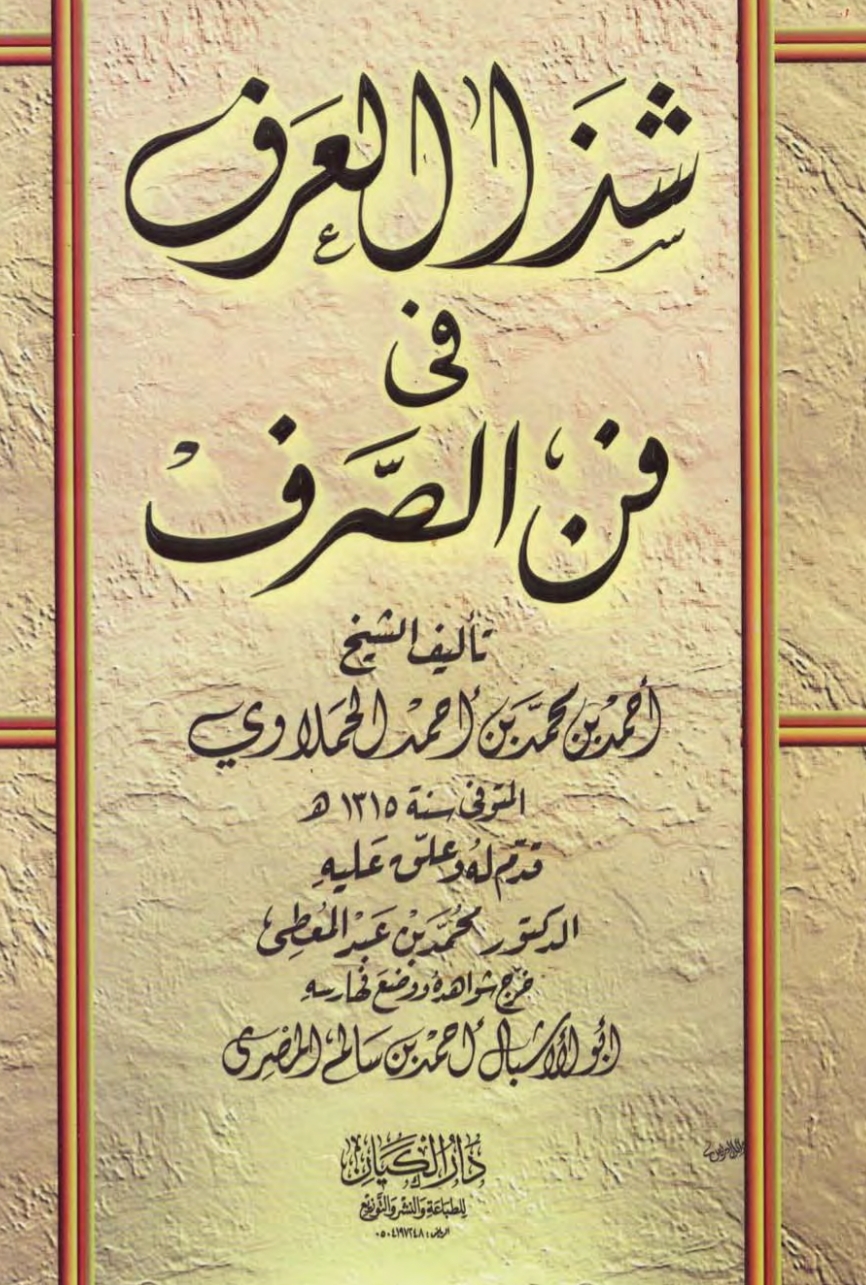 شَذَا العَرف
فى
فن الصَّرفْ
تأليف الشيخ
أحمَدْ بن محمَّد بَن أحمَدْ الحَمَلاوي
المتوفى سنة ١٣١٥ هـ
قدّم لهُ وعلّق عَليهِ
الدكتور محُمَّد بْن عَبْد المُعطِى
خرّج شواهدهُ ووضعَ فهارسهِ
أبُو الأشبَال أحمَدْ بن سَالم المَصْرِى
دَارُ الكَيَان
للطبَاعَةِ وَالنشْرِ وَالتَّوزيْع
الرياض : ٠٥٠٤١٩٧٢٤٨